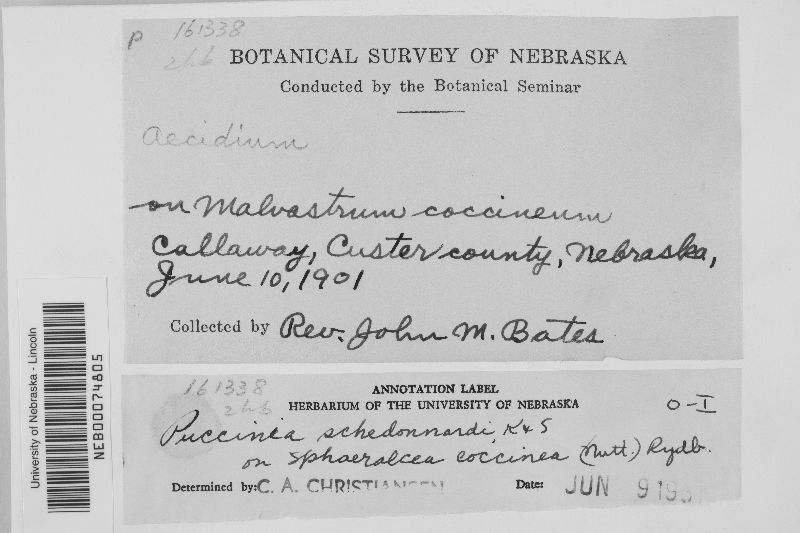 P 161338
266
BOTANICAL SURVEY OF NEBRASKA
Conducted by the Botanical Seminar
Aecidium
on Malvastrum coccineum
Callaway, Custer county, Nebraska,
June 10, 1901
Collected by Rev. John M. Bates
University of Nebraska - Lincoln
NEB00074805
161338
266
ANNOTATION LABEL
HERBARIUM OF THE UNIVERSITY OF NEBRASKA
O-I
Puccinia schedonnardi, K & S
on Sphaeralcea coccinea (Nutt.) Rydb.
Determined by: C. A. CHRISTIANSEN
Date: JUN 9